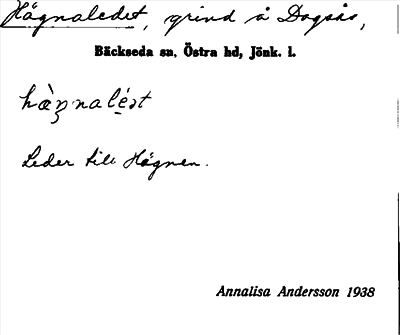 Hägnaledet, grind å Dagsås,
Bäckseda sn, Östra hd, Jönk. l.
Leder till Hägnen.
Annalisa Andersson 1938